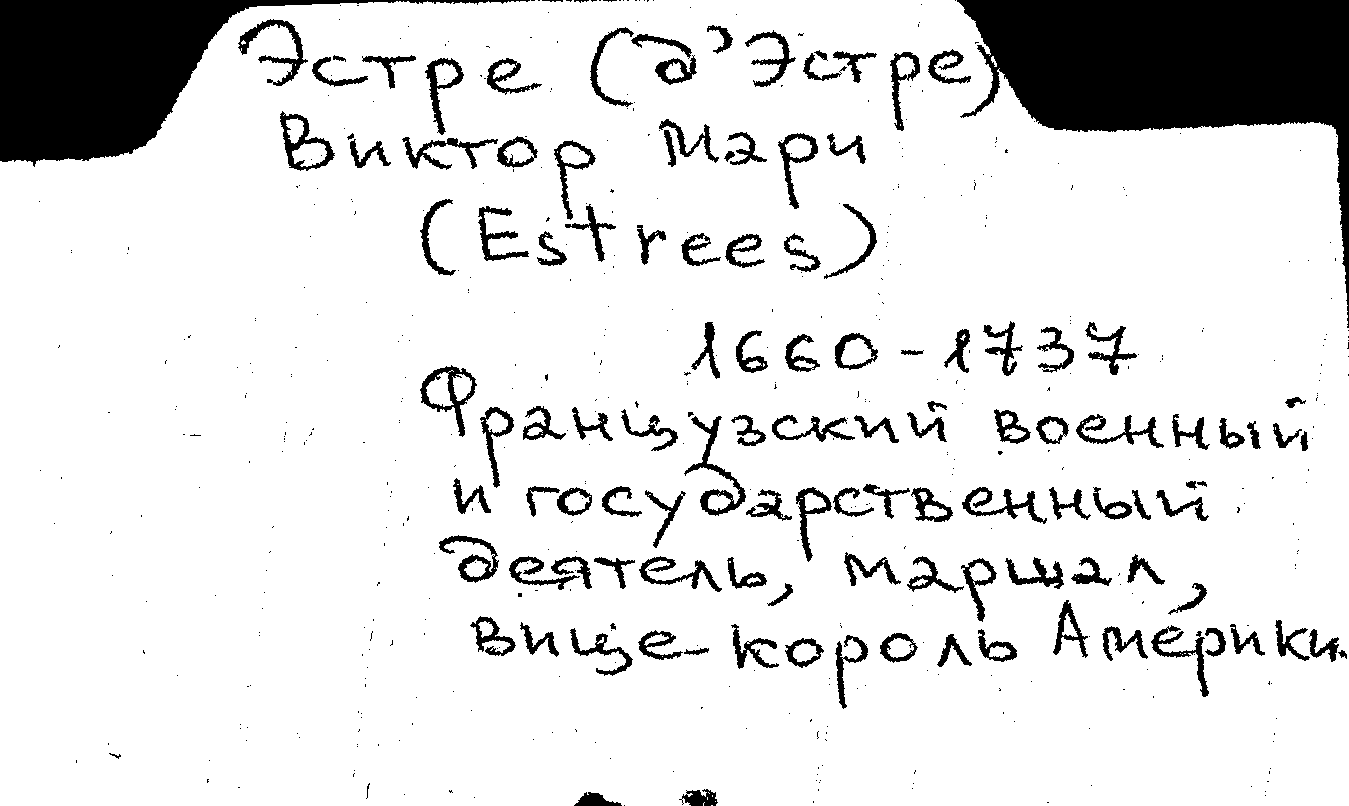 Эстре (д'Эстре)
Виктор Мари
(Estrees)
1660-1737
Французский военный
и государственный
деятель, маршал,
вице-король Америки.